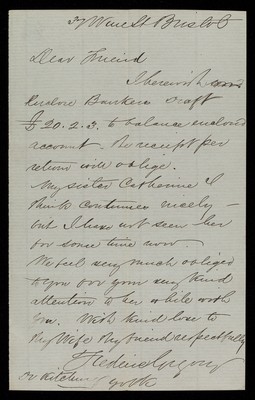 37 Wine St Bristol
Dear Friend
I herewith
Enclose Bankers Draft
£20.2.3. to balance enclosed
account. A receipt per
return will oblige.
My sister Catherine I
think continues nicely –
but I have not seen her
for some time now.
We feel very much obliged
to you for your very kind
attention to her while with
you. With kind love to
thy Wife thy friend respectfully
Frederic Gregory
Dr Kitching
York